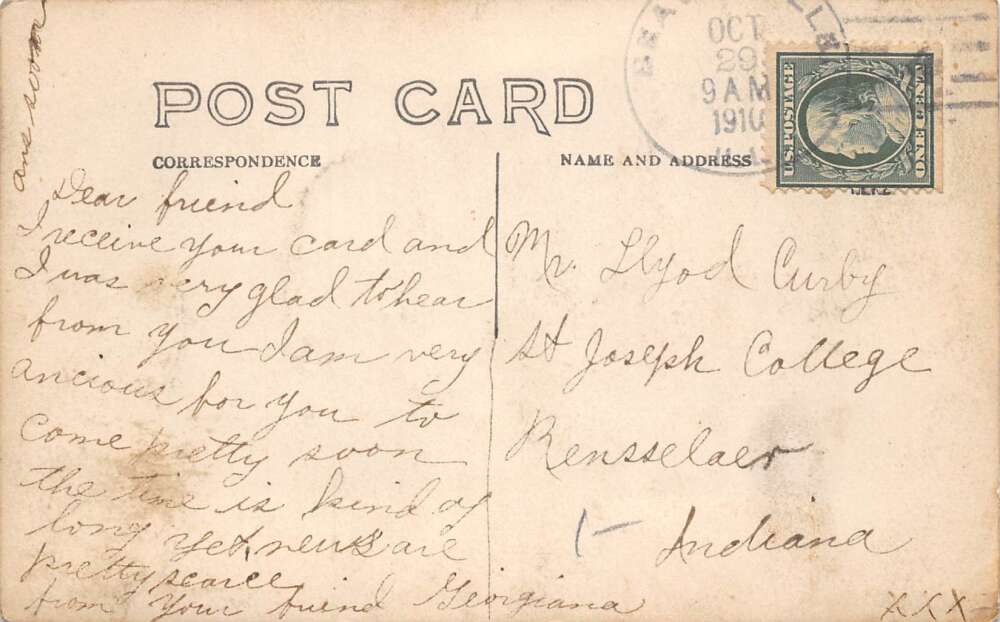 ans soon
OCT
29
9 AM
1910
U.S. POSTAGE
ONE CENT
POST CARD
CORRESPONDENCE
NAME AND ADDRESS
HERE
Dear friend
I receive your card and
I was very glad to hear
from you I am very
ancious for you to
come pretty soon
the time is kind of
long yet, news are
pretty scarce
from Your friend Georgiana
Mr. Llyod Curby
St Joseph College
Rensselaer
Indiana
1-
XXX